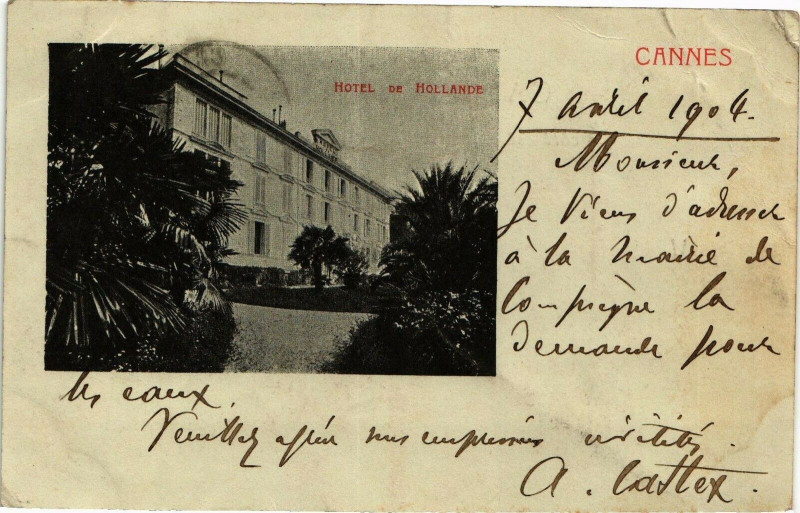 CANNES
HOTEL DE HOLLANDE
7 avril 1904.
Monsieur,
Je viens d'adresser
à la mairie de
Compiègne la
demande pour
les eaux.
Veuillez agréer mes
A. Castex.